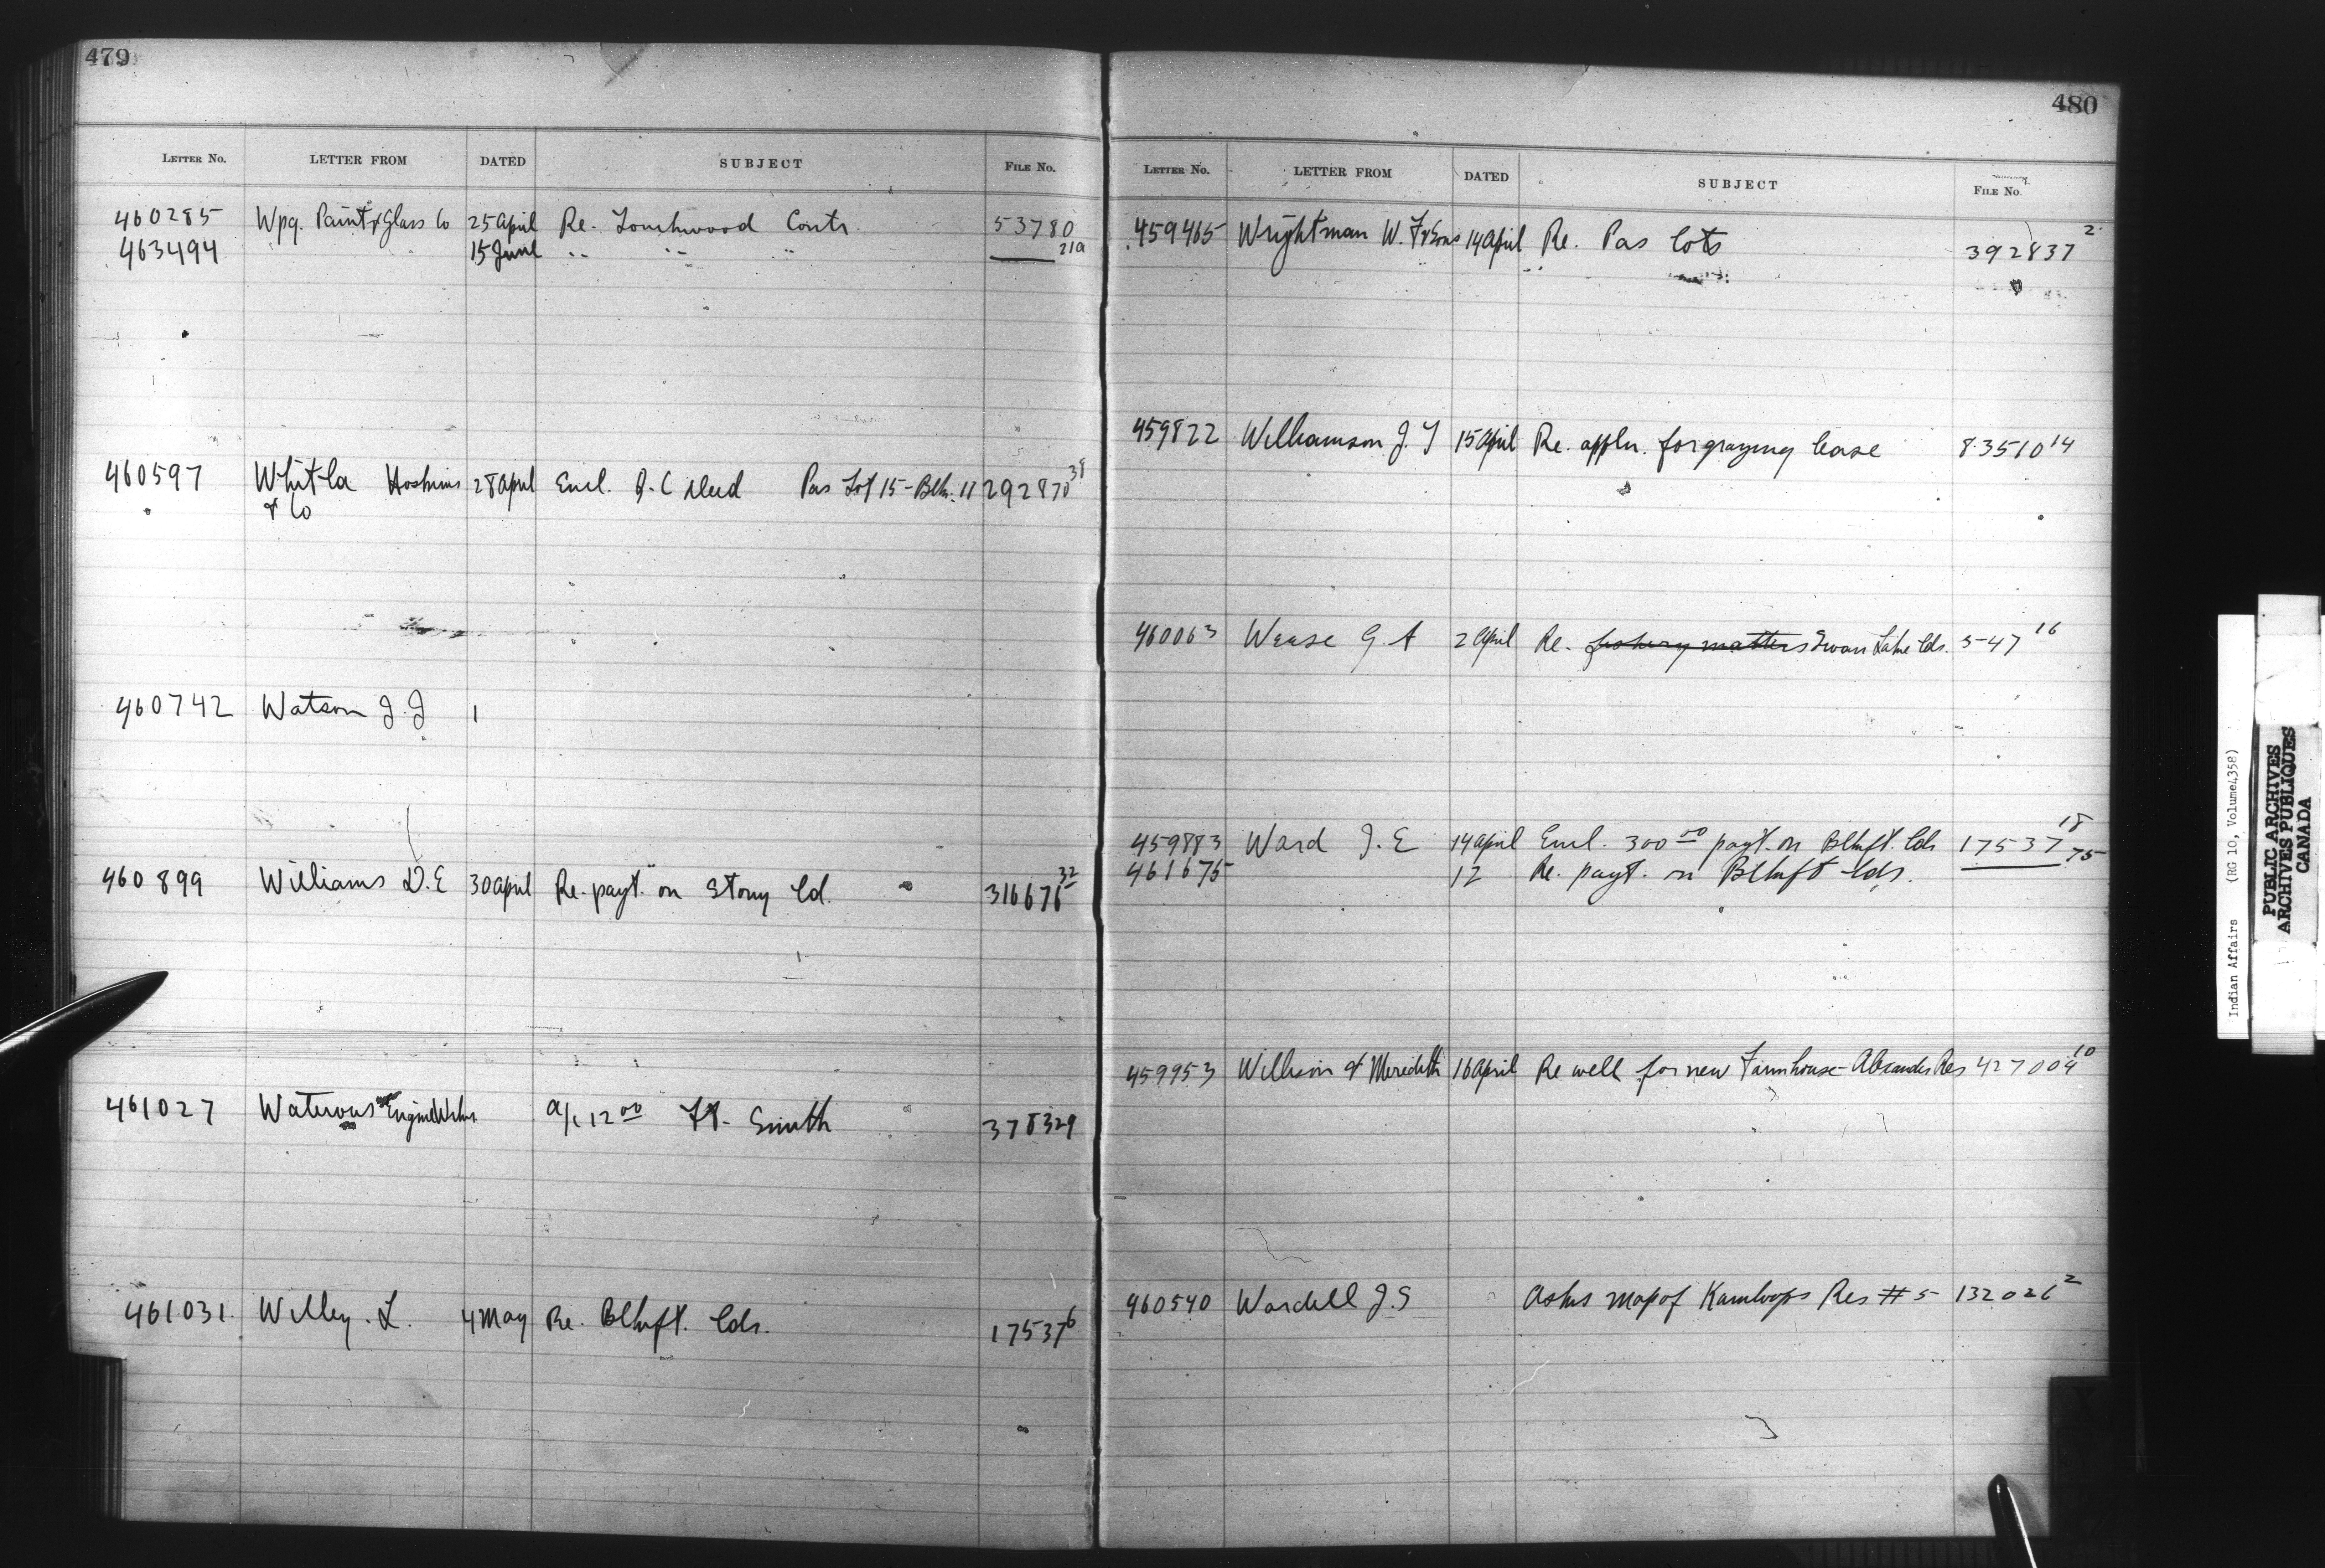 479
LETTER No. LETTER FROM DATED SUBJECT FILE No.
460285 Wpg. Paint & Glass Co 25 April Re. Touchwood Contr. 53780
463494 15 June " " " 21a
460597 Whitla Hoskins 28 April Encl. Q. C Deed Pas Lot 15 - Blk. 11 292870 38
& Co
460742 Watson J. J 1
460899 Williams D. E 30 April Re. payt. on Stony Ld. 316676 32
461027 Waterous Engine Works a/c 12 00 Ft. Smith 378329
461031. Willey. L. 4 May Re. Blkft. lds. 17537 6
480
LETTER No. LETTER FROM DATED SUBJECT FILE No.
459465 Wrightman W. F & Sons 14 April Re. Pas lots 392837 2
459822 Williamson J. T 15 April Re. appln. for grazing lease 8351014
460063 Wease G. A 2 April Re. fishery matters Swan Lake lds. 547 16
459883 Ward J. E 14 April Encl. 300 00 payt. on Blkft. lds 17537 18
461675 12 Re. payt. on Blkft lds. 75
459953 Willison & Meredith 16 April Re well for new Farmhouse - Alexander Res 427004 10
460540 Wardell J. S Asks map of Kamloops Res # 5 132026 2
Indian Affairs (RG 10, Volume 4358)
PUBLIC ARCHIVES
ARCHIVES PUBLIQUES
CANADA